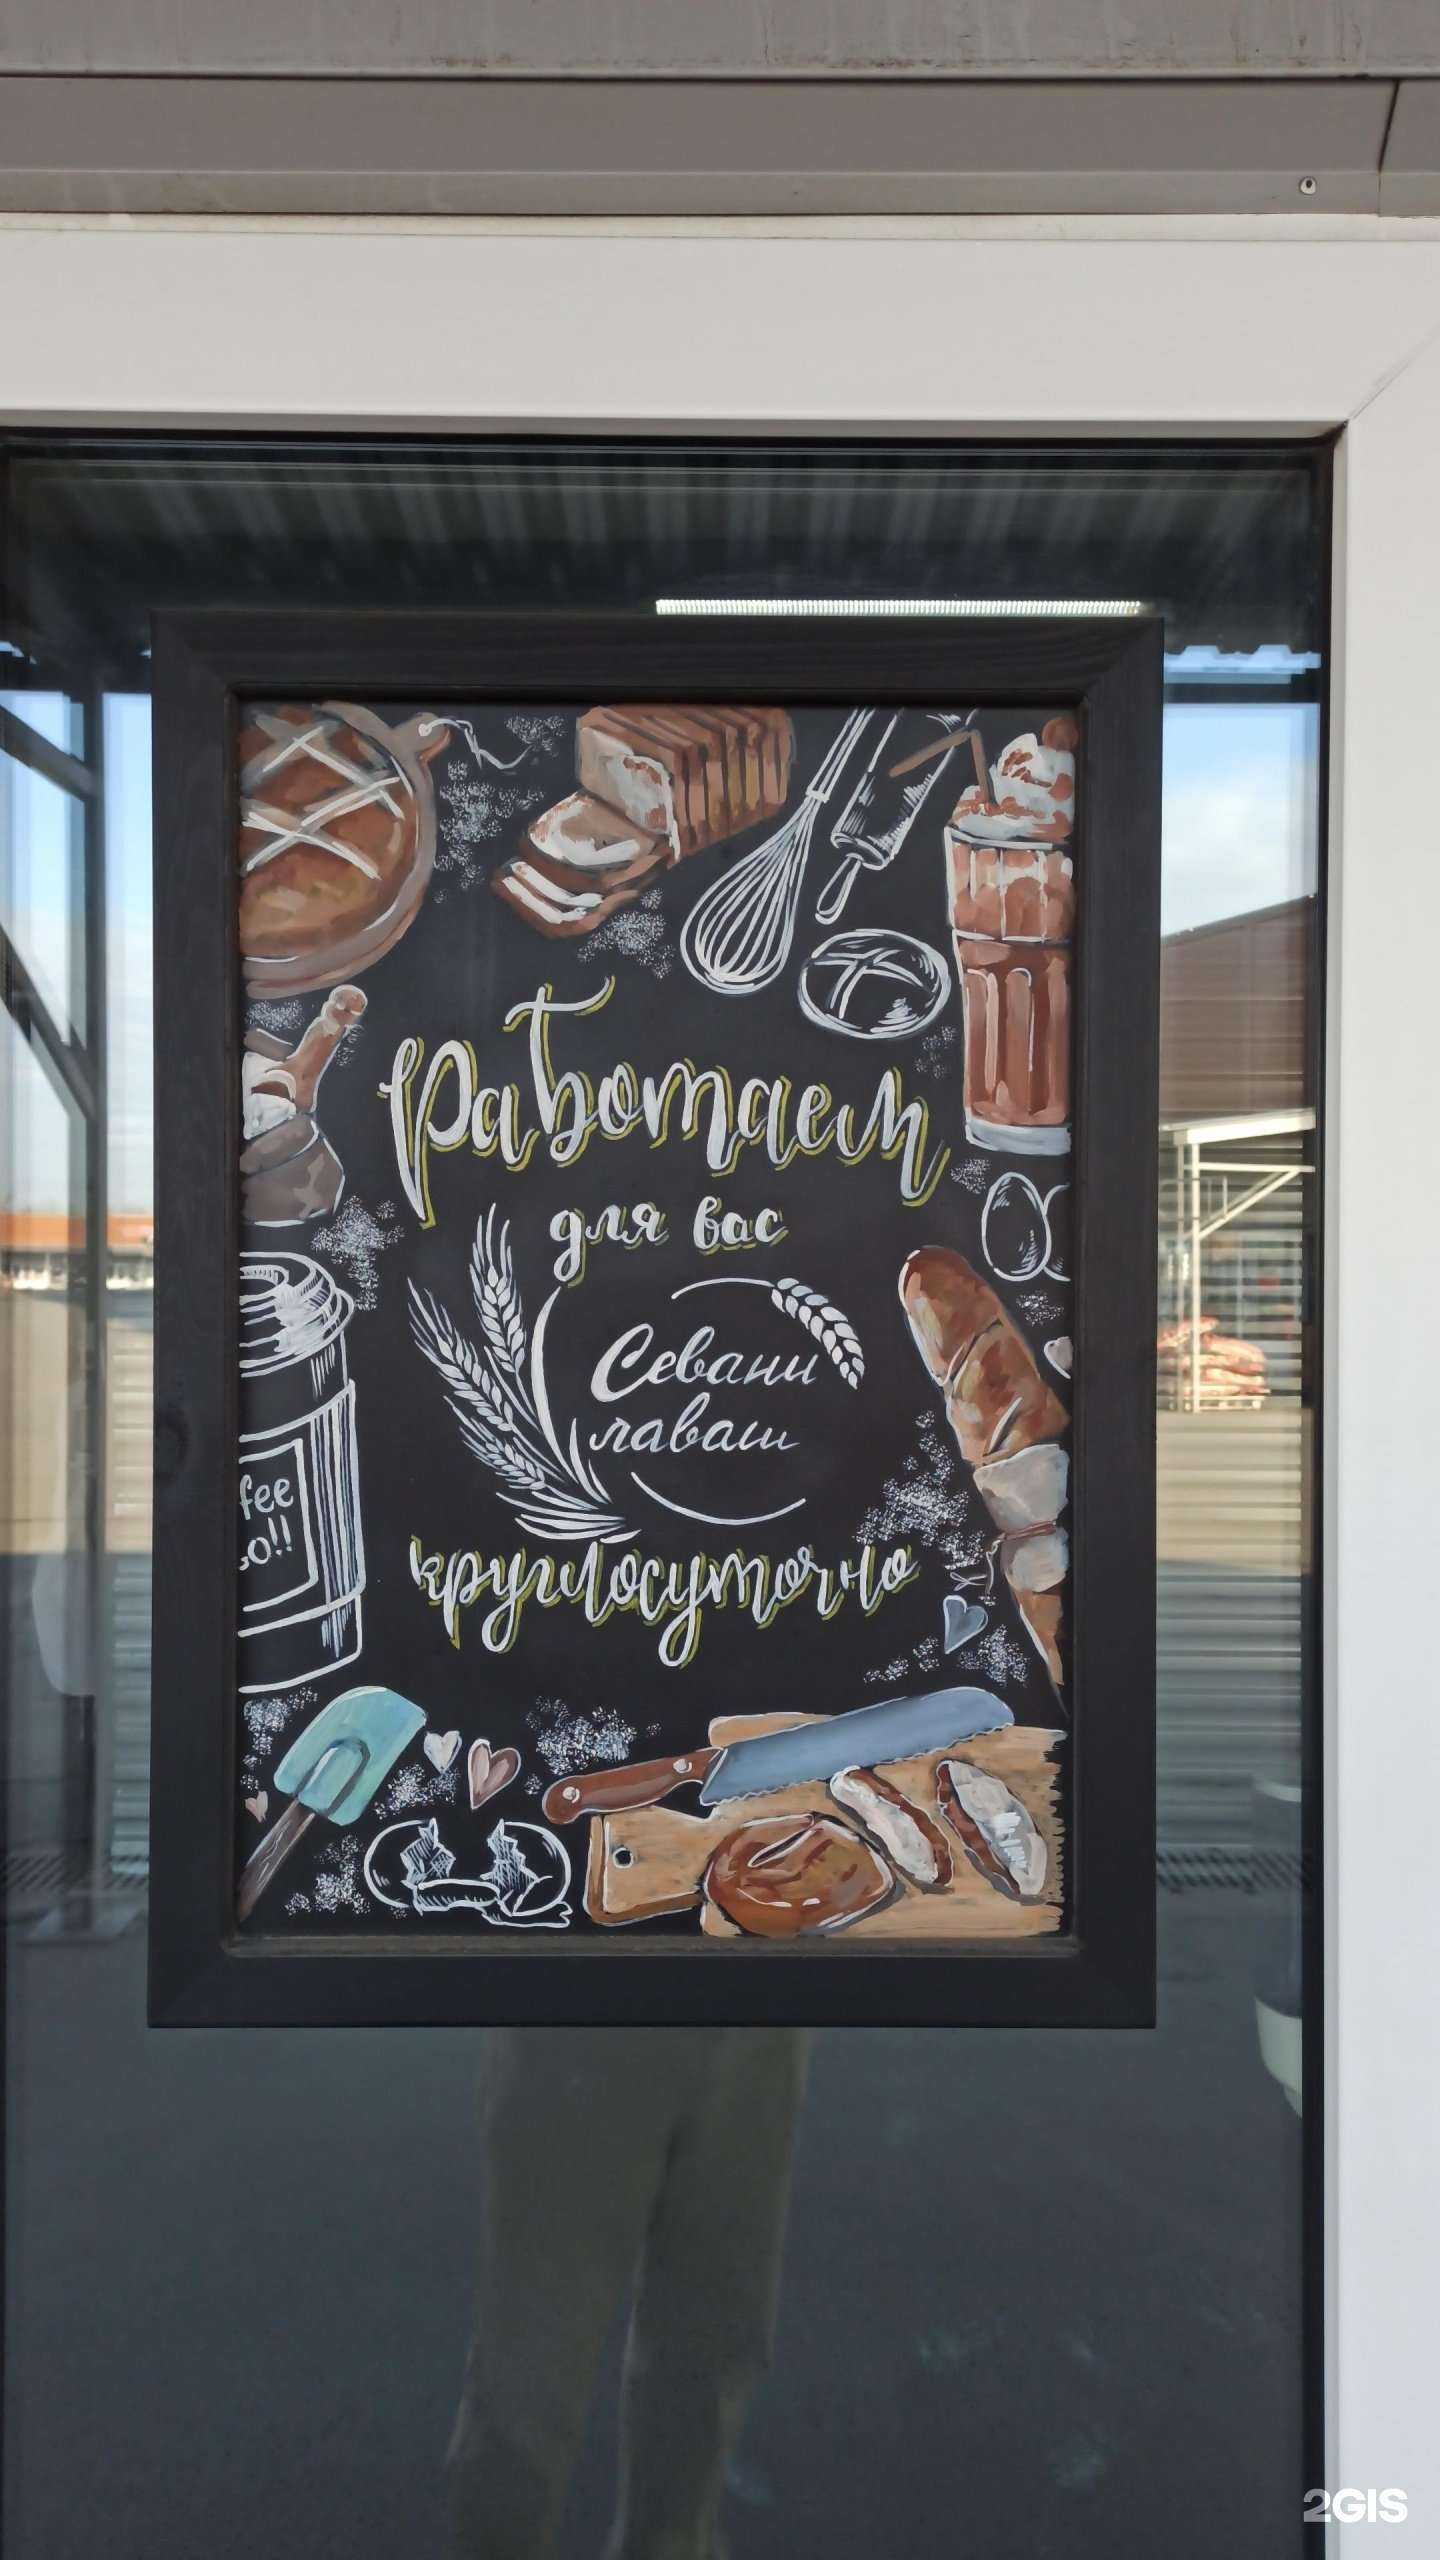 Работаем
для вас
Севани
лаваш
fee
круглосуточно
2GIS